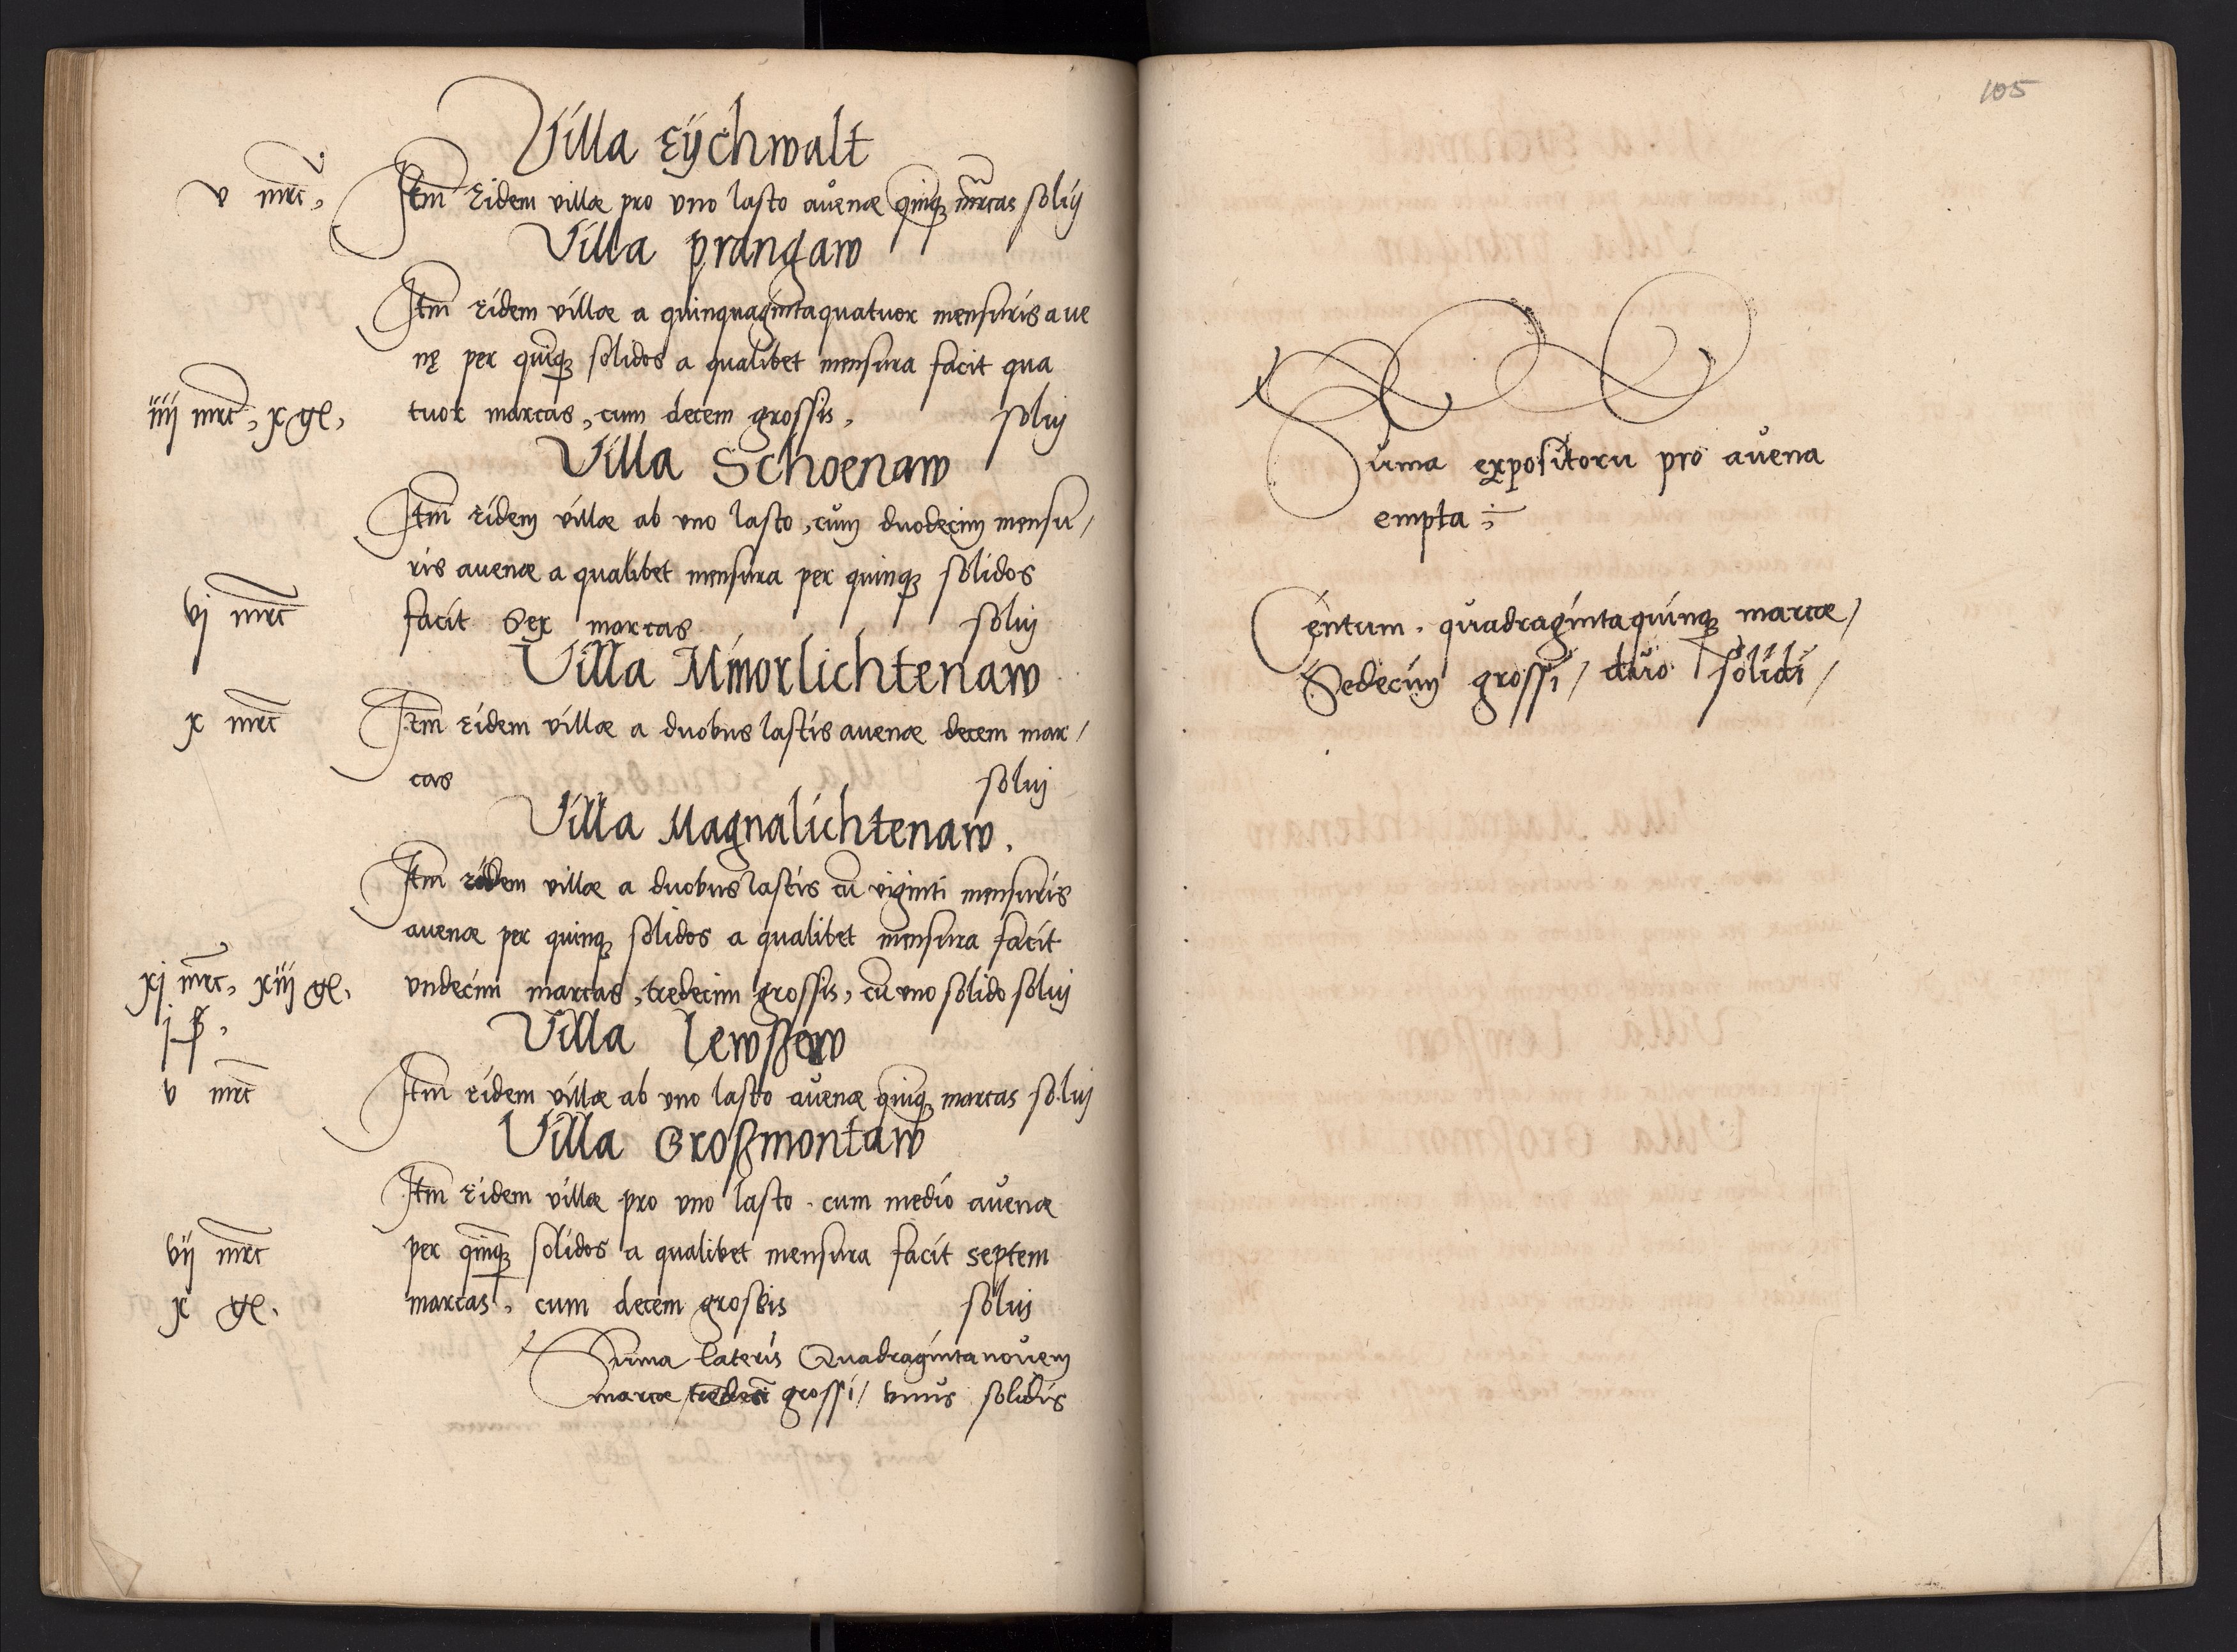 Villa Eychwalt
v mrc,
Itm Eidem villæ pro vno lasto auenæ quinqȝ mrcas solij
Villa prangaw
Itm Eidem villæ a quinquagintaquatuor mensuris aue
nę per quinqȝ solidos a qualibet mensura facit qua
iiij mrc, x gl,
tuor marcas, cum decem grossis, solij
Villa Schoenaw
Itm Eidem villæ ab vno lasto, cum duodecim mensu/
ris auenæ a qualibet mensura per quinqȝ solidos
vj mrc
facit Sex marcas solij
Villa Minorlichtenaw
x mrc
Itm Eidem villæ a duobus lastis auenæ decem mar/
cas solij
Villa Magnalichtenaw.
Itm Eidem villæ a duobus lastis cū viginti mensuris
auenæ per quinqȝ solidos a qualibet mensura facit
xj mrc, xiij gl,
vndecim marcas, tredecim grossis, cū vno solido solij
j ß,
Villa Lewssow
v mrc
Itm Eidem villæ ab vno lasto auenæ quinqȝ marcas solij
Villa Großmontaw
Itm Eidem villæ pro vno lasto cum medio auenæ
vij mrc
per quinqȝ solidos a qualibet mensura facit septem
x gl.
marcas, cum decem grossis solij
Suma lateris Quadragintanouem
marcæ tredeci grossi/ vnus solidus
105
Suma expositoru pro auena
empta
Centum quadragintaquinqȝ marcæ/
Sedecim grossi/ duo solidi/